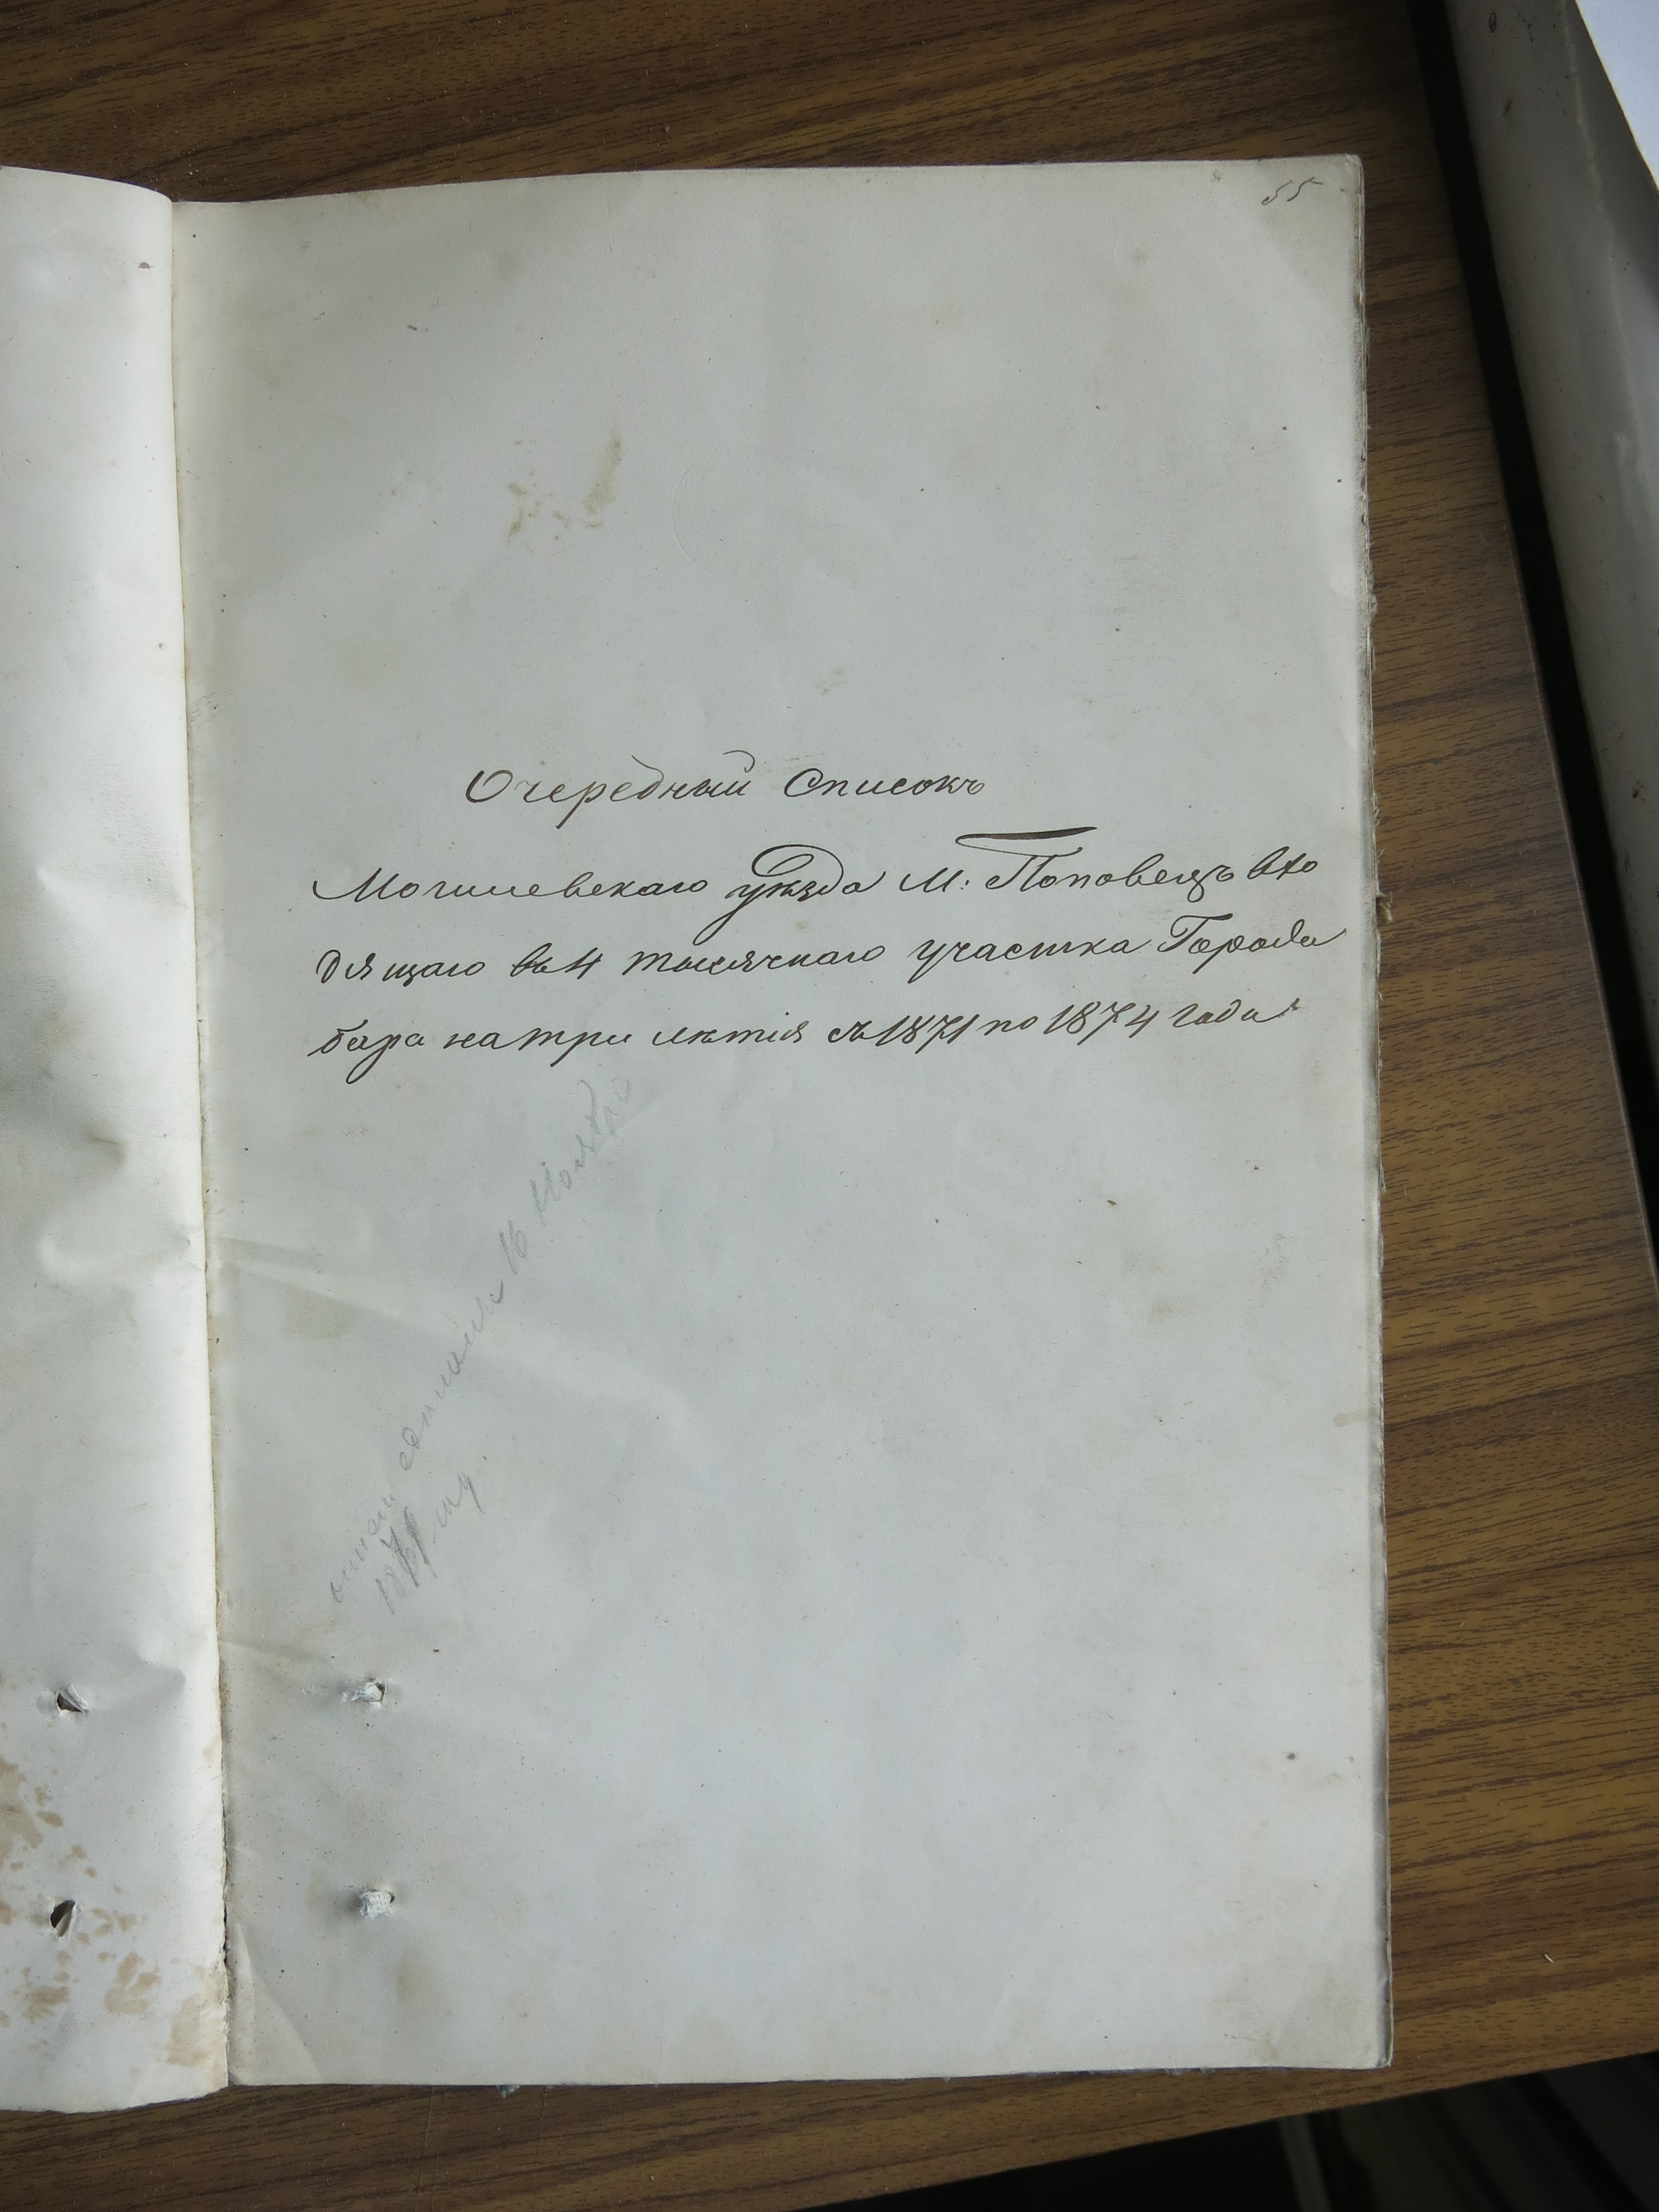 55
Очередный Списокъ
Могилевскаго уѣзда М: Поповецъ вхо
дящаго въ 4 тысячнаго участка Города
бара на три лѣтія съ 1871 по 1874 года
16 Ноября